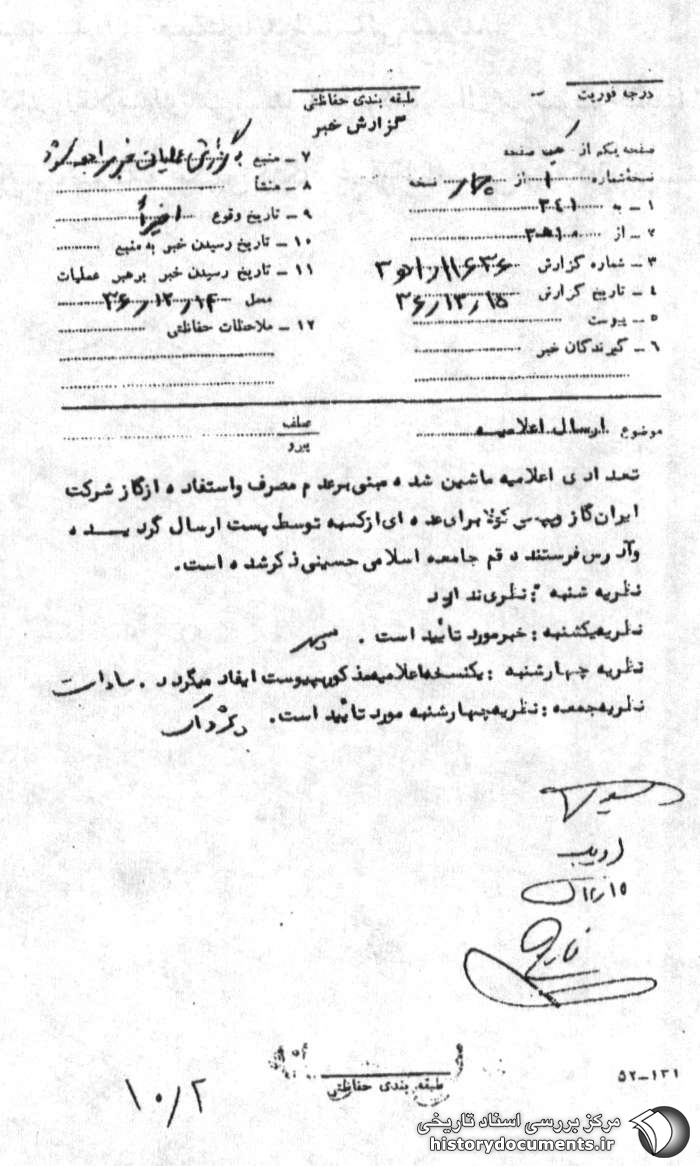 درجه فوریت -
طبقه بندی حفاظتی
گزارش خبر
صفحه یکم از یک صفحه
نسخه شماره ۱ از چهار نسخه
۱ ـ به ۳٤۱
۲ ـ از
۳ ـ شماره گزارش
۴ ـ تاریخ گزارش ۳۶/۱۲/۱۵
۵ ـ پیوست
۶ ـ گیرندگان خبر
۷ ـ منبع به گزارش عملیاتی خبر مراجعه شود
۸ ـ منشأ
۹ ـ تاریخ وقوع اخیراً
۱۰ ـ تاریخ رسیدن خبر به منبع
۱۱ ـ تاریخ رسیدن خبر برهبر عملیات
محل ۳۶/۱۲/۱۴
۱۲ ـ ملاحظات حفاظتی
موضوع ارسال اعلامیه
عطف
پیرو
تعدادی اعلامیه ماشین شده مبنی بر عدم مصرف و استفاده از گاز شرکت
ایران گاز و پپسی کولا برای عده ای از کسبه توسط پست ارسال گردیده
و آدرس فرستنده قم جامعه اسلامی حسینی ذکر شده است.
نظریه شنبه : نظری ندارد
نظریه یکشنبه : خبر مورد تأیید است . سپهر
نظریه چهارشنبه : یکنسخه اعلامیه مذکور به پیوست ایفاد میگردد . سادات
نظریه جمعه : نظریه چهارشنبه مورد تأیید است.
۱۵/۱۲
طبقه بندی حفاظتی
۵۲-۱۳۱
۱۰/۲
مرکز بررسی اسناد تاریخی
historydocuments.ir